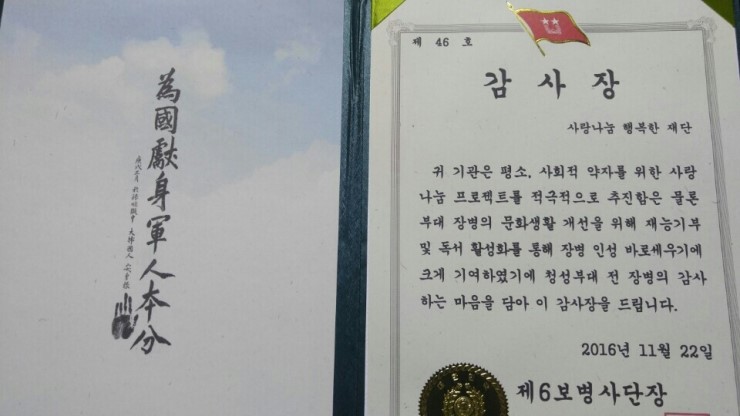 為國獻身軍人本分
庚戌三月 於旅順獄中 大韓國人 安重根
제 46 호
감 사 장
사랑나눔 행복한 재단
귀 기관은 평소, 사회적 약자를 위한 사랑
나눔 프로젝트를 적극적으로 추진함은 물론
부대 장병의 문화생활 개선을 위해 재능기부
및 독서 활성화를 통해 장병 인성 바로세우기에
크게 기여하였기에 청성부대 전 장병의 감사
하는 마음을 담아 이 감사장을 드립니다.
2016년 11월 22일
제6보병사단장